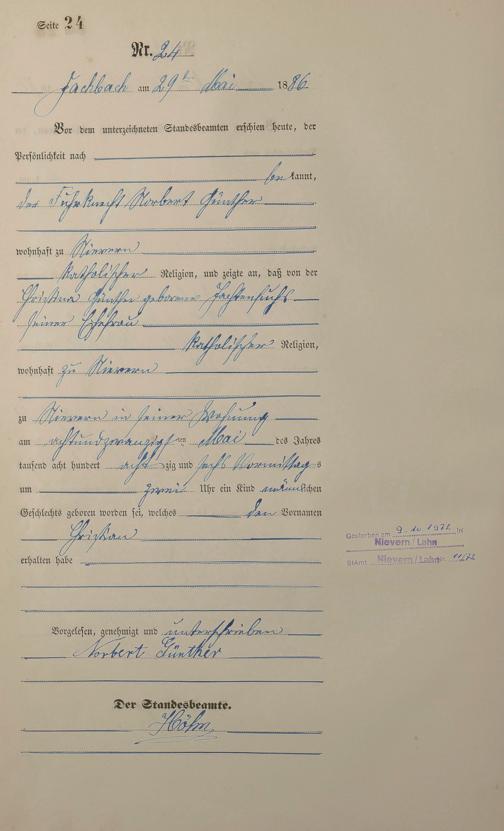 Seite 24
Nr. 24
Fachbach am 29ten Mai 1886.
Vor dem unterzeichneten Standesbeamten erschien heute, der
Persönlichkeit nach
bekannt,
der Fuhrknecht Norbert Günther
wohnhaft zu Nievern
katholischer Religion, und zeigte an, daß von der
Christina Günther geborenen
seiner Ehefrau
katholischer Religion,
wohnhaft zu Nievern
zu Nievern in seiner Wohnung
am achtundzwanzigsten Mai des Jahres
tausend acht hundert achtzig und sechs Vormittags
um zwei Uhr ein Kind männlichen
Geschlechts geboren worden sei, welches den Vornamen
Christian
erhalten habe
Vorgelesen, genehmigt und unterschrieben
Norbert Günther
Der Standesbeamte.
Höhn
Gestorben am 9.10.1972 in
Nievern/Lahn
StAmt Nievern/Lahn 11/72